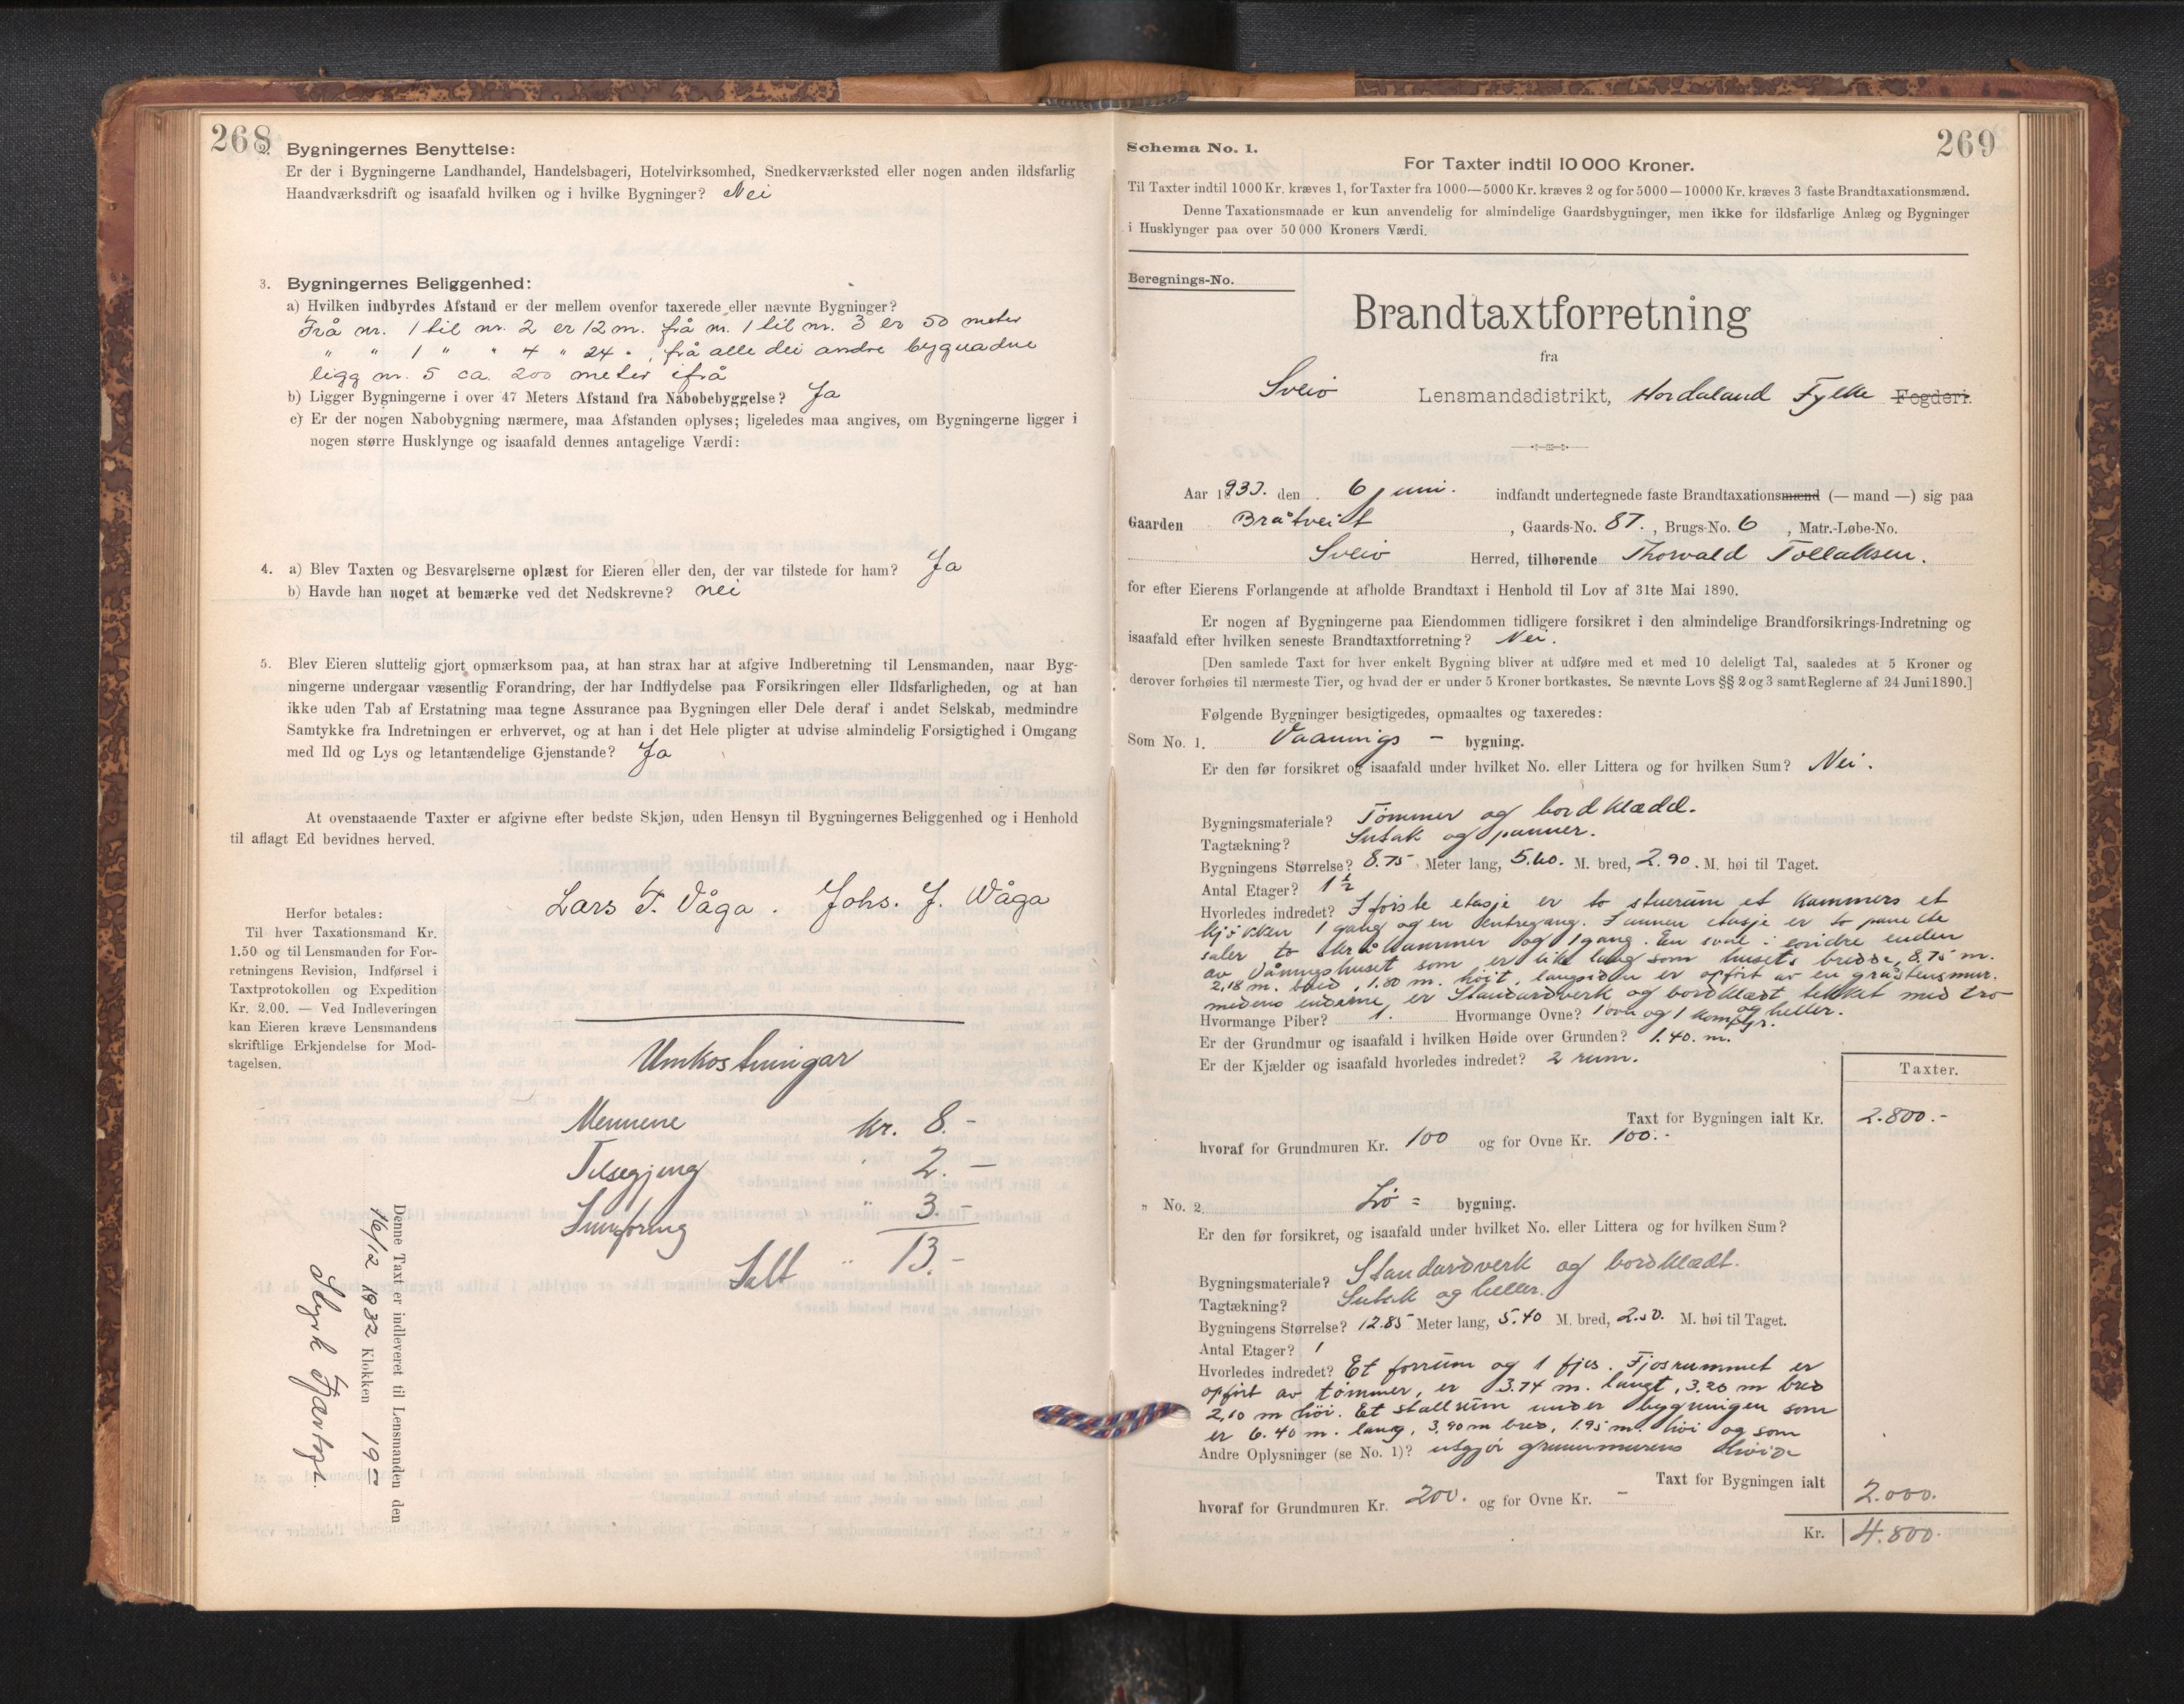 268
2. Bygningernes Benyttelse:
Er der i Bygningerne Landhandel, Handelsbageri, Hotelvirksomhed, Snedkerværksted eller nogen anden ildsfarlig
Haandværksdrift og isaafald hvilken og i hvilke Bygninger? Nei
3. Bygningernes Beliggenhed:
a) Hvilken indbyrdes Afstand er der mellem ovenfor taxerede eller nævnte Bygninger?
Frå nr. 1 til nr. 2 er 12 m. frå nr. 1 til nr. 3 er 50 meter
" " 1 " " 4 " 24 " , frå alle dei andre bygnadne
ligg nr. 5 ca. 200 meter ifrå
b) Ligger Bygningerne i over 47 Meters Afstand fra Nabobebyggelse? Ja
c) Er der nogen Nabobygning nærmere, maa Afstanden oplyses; ligeledes maa angives, om Bygningerne ligger i
nogen større Husklynge og isaafald dennes antagelige Værdi:
4. a) Blev Taxten og Besvarelserne oplæst for Eieren eller den, der var tilstede for ham? Ja
b) Havde han noget at bemærke ved det Nedskrevne? nei
5. Blev Eieren sluttelig gjort opmærksom paa, at han strax har at afgive Indberetning til Lensmanden, naar Byg-
ningerne undergaar væsentlig Forandring, der har Indflydelse paa Forsikringen eller Ildsfarligheden, og at han
ikke uden Tab af Erstatning maa tegne Assurance paa Bygningen eller Dele deraf i andet Selskab, medmindre
Samtykke fra Indretningen er erhvervet, og at han i det Hele pligter at udvise almindelig Forsigtighed i Omgang
med Ild og Lys og letantændelige Gjenstande? Ja
At ovenstaaende Taxter er afgivne efter bedste Skjøn, uden Hensyn til Bygningernes Beliggenhed og i Henhold
til aflagt Ed bevidnes herved.
Lars T. Våga. Johs. J. Våga
Herfor betales:
Til hver Taxationsmand Kr.
1.50 og til Lensmanden for For-
retningens Revision, Indførsel i
Taxtprotokollen og Expedition
Kr. 2.00. — Ved Indleveringen
kan Eieren kræve Lensmandens
skriftlige Erkjendelse for Mod-
tagelsen.
Umkostningar
Mennene kr. 8.-
Tilsegjing " 2.-
Innføring " 3.-
Ialt " 13.-
Denne Taxt er indleveret til Lensmanden den
16/12 1932 Klokken 19
269
Schema No. 1.
For Taxter indtil 10 000 Kroner.
Til Taxter indtil 1000 Kr. kræves 1, for Taxter fra 1000—5000 Kr. kræves 2 og for 5000—10000 Kr. kræves 3 faste Brandtaxationsmænd.
Denne Taxationsmaade er kun anvendelig for almindelige Gaardsbygninger, men ikke for ildsfarlige Anlæg og Bygninger
i Husklynger paa over 50 000 Kroners Værdi.
Beregnings-No.
Brandtaxtforretning
fra
Sveio Lensmandsdistrikt, Hordaland Fylke Fogderi.
Aar 1933. den 6 juni. indfandt undertegnede faste Brandtaxationsmænd (— mand —) sig paa
Gaarden Bråtveit, Gaards-No. 87., Brugs-No. 6, Matr.-Løbe-No.
Sveio Herred, tilhørende Thorvald Tollaksen.
for efter Eierens Forlangende at afholde Brandtaxt i Henhold til Lov af 31te Mai 1890.
Er nogen af Bygningerne paa Eiendommen tidligere forsikret i den almindelige Brandforsikrings-Indretning og
isaafald efter hvilken seneste Brandtaxtforretning? Nei.
[Den samlede Taxt for hver enkelt Bygning bliver at udføre med et med 10 deleligt Tal, saaledes at 5 Kroner og
derover forhøies til nærmeste Tier, og hvad der er under 5 Kroner bortkastes. Se nævnte Lovs §§ 2 og 3 samt Reglerne af 24 Juni 1890.]
Følgende Bygninger besigtigedes, opmaaltes og taxeredes:
Som No. 1. Vaanings - bygning.
Er den før forsikret og isaafald under hvilket No. eller Littera og for hvilken Sum? Nei.
Bygningsmateriale? Tømmer og bordklædd.
Tagtækning? Sutak og panner.
Bygningens Størrelse? 8.75 Meter lang, 5.60. M. bred, 2.90. M. høi til Taget.
Antal Etager? 1½
Hvorledes indredet? I første etasje er to stuerum et kammers et
kjøkken 1 gang og en entregang. I annen etasje er to panelte
saler to skråkammer og 1 gang. En sval i søndre enden
av Våningshuset som er like lang som husets bredde, 8,75 m.
2,18 m. bred, 1.80 m. høit, langsiden er opført av en gråstensmur.
medens enderne er Standardverk og bordklædt tekket med tro
og heller.
Hvormange Piber? 1. Hvormange Ovne? 1 ovn og 1 komfyr.
Er der Grundmur og isaafald i hvilken Høide over Grunden? 1.40. m.
Er der Kjælder og isaafald hvorledes indredet? 2 rum.
Taxter.
Taxt for Bygningen ialt Kr. 2.800.-
hvoraf for Grundmuren Kr. 100 og for Ovne Kr. 100.-
" No. 2. Lø = bygning.
Er den før forsikret, og isaafald under hvilket No. eller Littera og for hvilken Sum?
Bygningsmateriale? Standardverk og bordklædt.
Tagtækning? Sutak og heller.
Bygningens Størrelse? 12.85 Meter lang, 5.40 M. bred, 2.50. M. høi til Taget.
Antal Etager? 1
Hvorledes indredet? Et forrum og 1 fjos. Fjosrummet er
opført av tømmer, er 3.74 m. langt, 3.20 m bred
2,10 m høi. Et stallrum under bygningen som
er 6.40 m. lang, 3,90 m bred, 1.95 m. høi og som
Andre Oplysninger (se No. 1)? utgjør grunnmurens høide
Taxt for Bygningen ialt 2.000.
hvoraf for Grundmuren Kr. 200. og for Ovne Kr. -
Kr. 4.800.